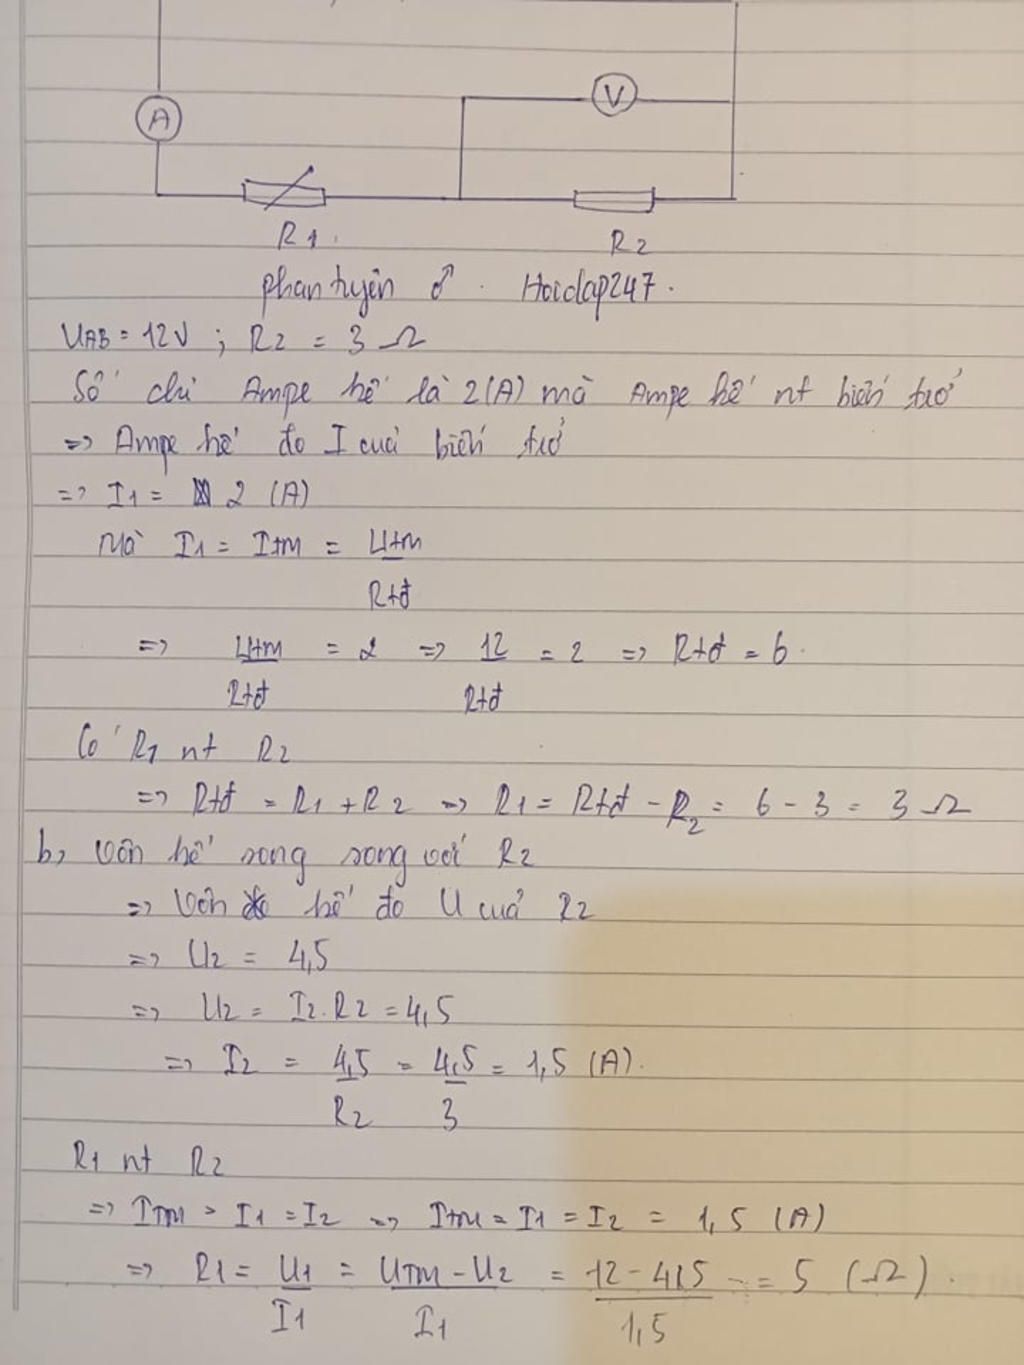 A
V
R1.
R2
phan tuyên ♂. Hoidap247.
UAB = 12V ; R2 = 3 Ω
Số chỉ Ampe hế là 2(A) mà Ampe hế nt biến trở
=> Ampe hế đo I của biến trở
=> I1 = 2 (A)
Mà I1 = Itm = Utm / Rtđ
=> Utm / Rtđ = 2 => 12 / Rtđ = 2 => Rtđ = 6.
Có R1 nt R2
=> Rtđ = R1 + R2 => R1 = Rtđ - R2 = 6 - 3 = 3 Ω
b, Vôn hế song song với R2
=> Vôn hế đo U của R2
=> U2 = 4,5
=> U2 = I2.R2 = 4,5
=> I2 = 4,5 / R2 = 4,5 / 3 = 1,5 (A).
R1 nt R2
=> ITM = I1 = I2 => Itm = I1 = I2 = 1,5 (A)
=> R1 = U1 / I1 = UTM - U2 / I1 = 12 - 4,5 / 1,5 = 5 (Ω).